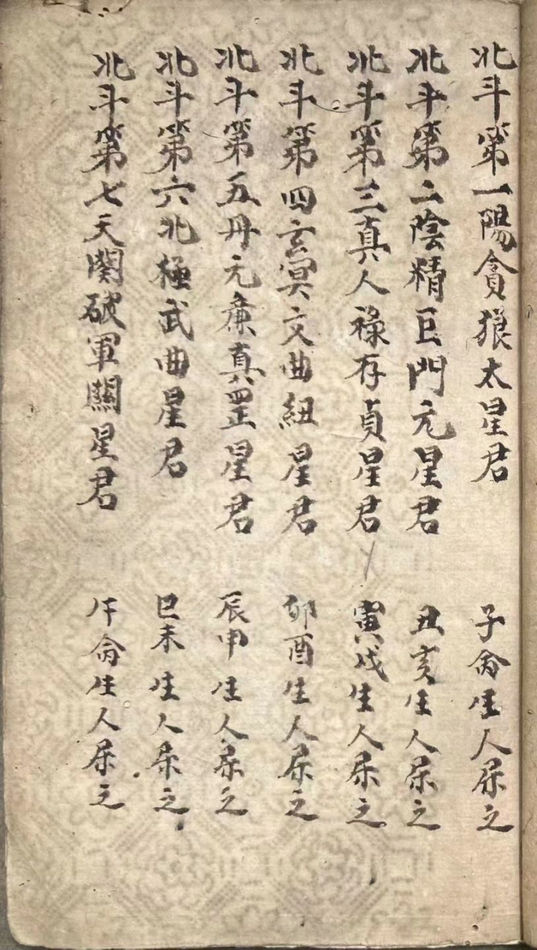 北斗第一陽貪狼太星君 子命生人屬之
北斗第二陰精巨門元星君 丑亥生人屬之
北斗第三真人祿存貞星君 寅戌生人屬之
北斗第四玄冥文曲紐星君 卯酉生人屬之
北斗第五丹元廉真罡星君 辰申生人屬之
北斗第六北極武曲星君 巳未生人屬之
北斗第七天関破軍關星君 午命生人屬之